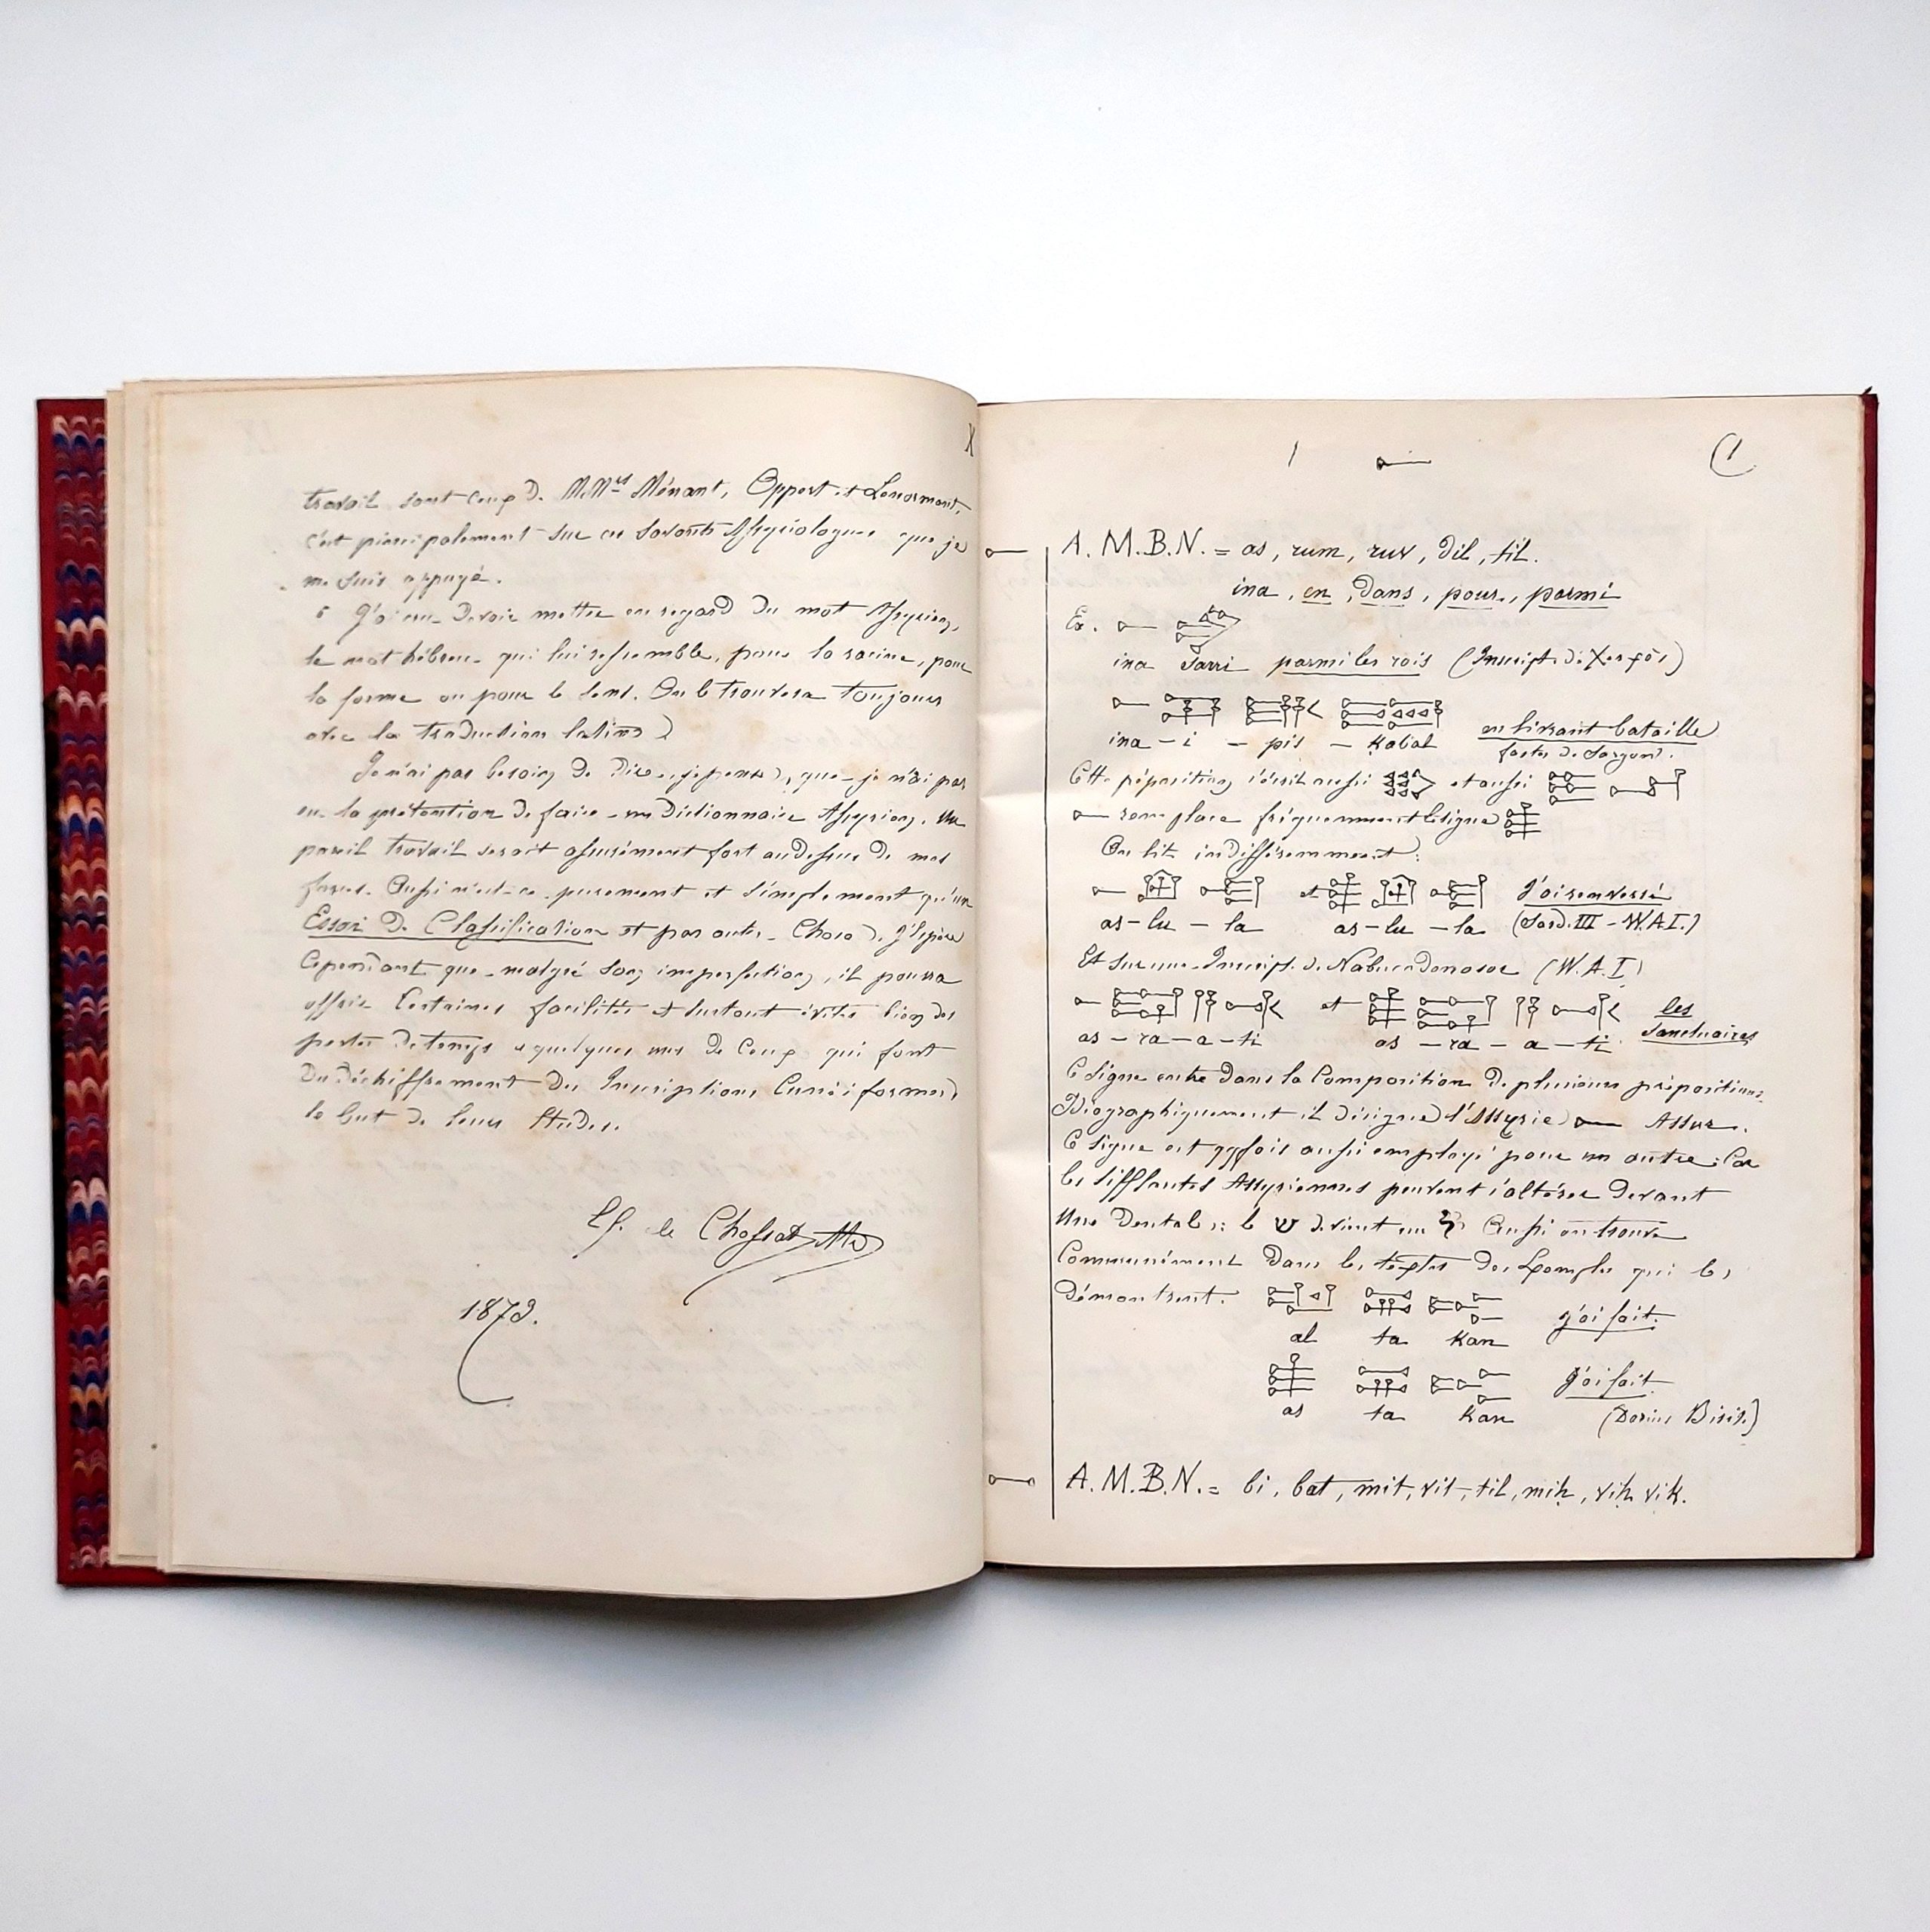 X
travail sont ceux de M.Mrs Ménant, Oppert et Lenormant,
c'est principalement sur ces savants Assyriologues que je
me suis appuyé.
J'ai cru devoir mettre en regard du mot Assyrien,
le mot hébreu qui lui ressemble, pour la racine, pour
la forme ou pour le sens. On le trouvera toujours
avec la traduction latine
Je n'ai pas besoin de dire, je pense, que je n'ai pas
eu la prétention de faire un dictionnaire Assyrien. Un
pareil travail serait assurément fort au dessus de mes
forces. Aussi n'est-ce purement et simplement qu'un
Essai de Classification et pas autre Chose. J'espère
Cependant que malgré son imperfection, il pourra
offrir Certaines facilités et surtout éviter bien des
pertes de temps à quelques uns de Ceux qui font
du déchiffrement des Inscriptions Cunéiformes
le but de leurs études.
de Chossat
1873.
1 𒀸
1
𒀸 A. M. B. N. = as, rum, ruv, dil, til.
ina, en, dans, pour, parmi
Ex. 𒀸
ina sarri parmi les rois (Inscript. de Xerxès)
ina - i - pis - Kabal en livrant bataille
fastes de Sargon.
Cette préposition s'écrit aussi et aussi
𒀸 remplace fréquemment le signe 𒀾
On lit indifféremment:
et j'ai renversé
as - lu - la as - lu - la (Sard. III - W.A.I.)
Et sur une Inscript. de Nabucodonosor (W.A.I)
et les
as - ra - a - ti as - ra - a - ti sanctuaires
Ce signe entre dans la Composition de plusieurs prépositions
Idéographiquement il désigne l'Assyrie 𒀸 Assur.
Ce signe est qqfois aussi employé pour un autre; Car
les sifflantes Assyriennes peuvent s'altérer devant
Une Dentale: le ש devient un ל Aussi on trouve
Communément dans les textes des Exemples qui le
démontrent.
j'ai fait.
al ta Kan
j'ai fait
as ta Kan (Darius Bisit.)
A. M. B. N. = bi, bat, mit, vit, til, miḥ, viḥ, vik.